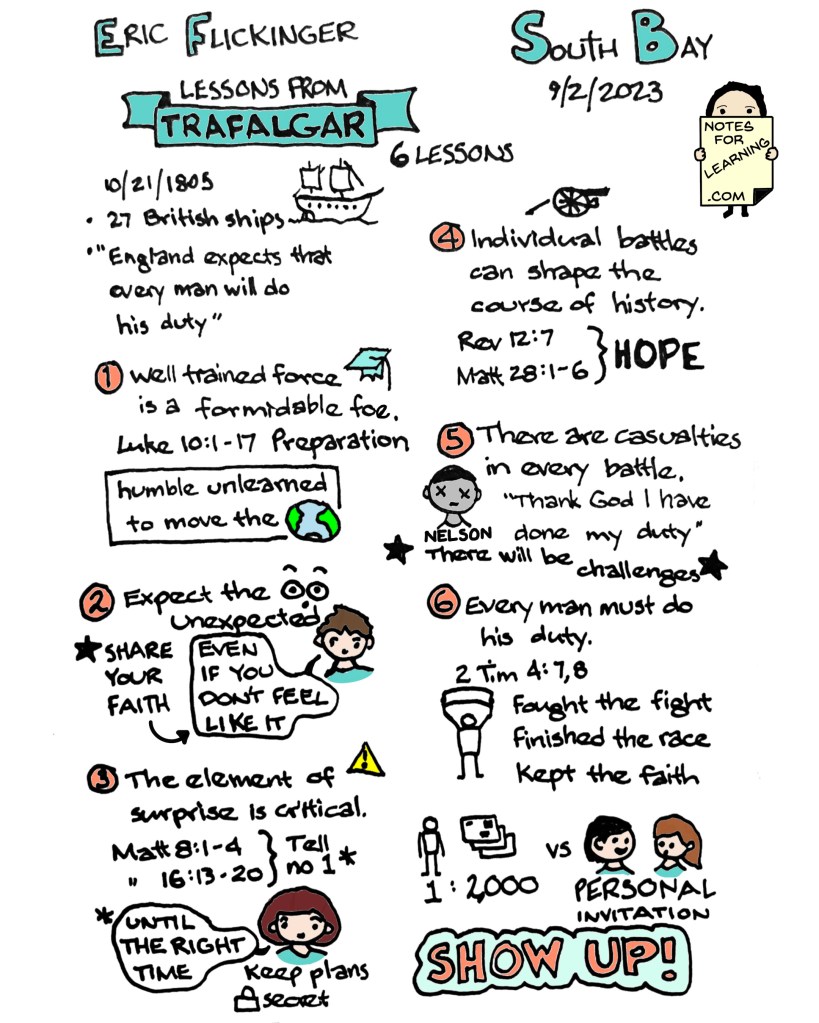 ERIC FLICKINGER
SOUTH BAY
9/2/2023
NOTES
FOR
LEARNING
.COM
LESSONS FROM
TRAFALGAR
6 LESSONS
10/21/1805
• 27 British ships
• "England expects that
every man will do
his duty"
1 Well trained force
is a formidable foe.
Luke 10:1-17 Preparation
humble unlearned
to move the
2 Expect the
unexpected
★ SHARE
YOUR
FAITH
EVEN
IF YOU
DON'T FEEL
LIKE IT
3 The element of
surprise is critical.
Matt 8:1-4
" 16:13-20
} Tell
no 1 *
* UNTIL
THE RIGHT
TIME
Keep plans
secret
4 Individual battles
can shape the
course of history.
Rev 12:7
Matt 28:1-6
} HOPE
5 There are casualties
in every battle.
"Thank God I have
done my duty"
NELSON
★ There will be
challenges ★
6 Every man must do
his duty.
2 Tim 4:7,8
Fought the fight
Finished the race
Kept the faith
1 : 2,000
vs
PERSONAL
INVITATION
SHOW UP!